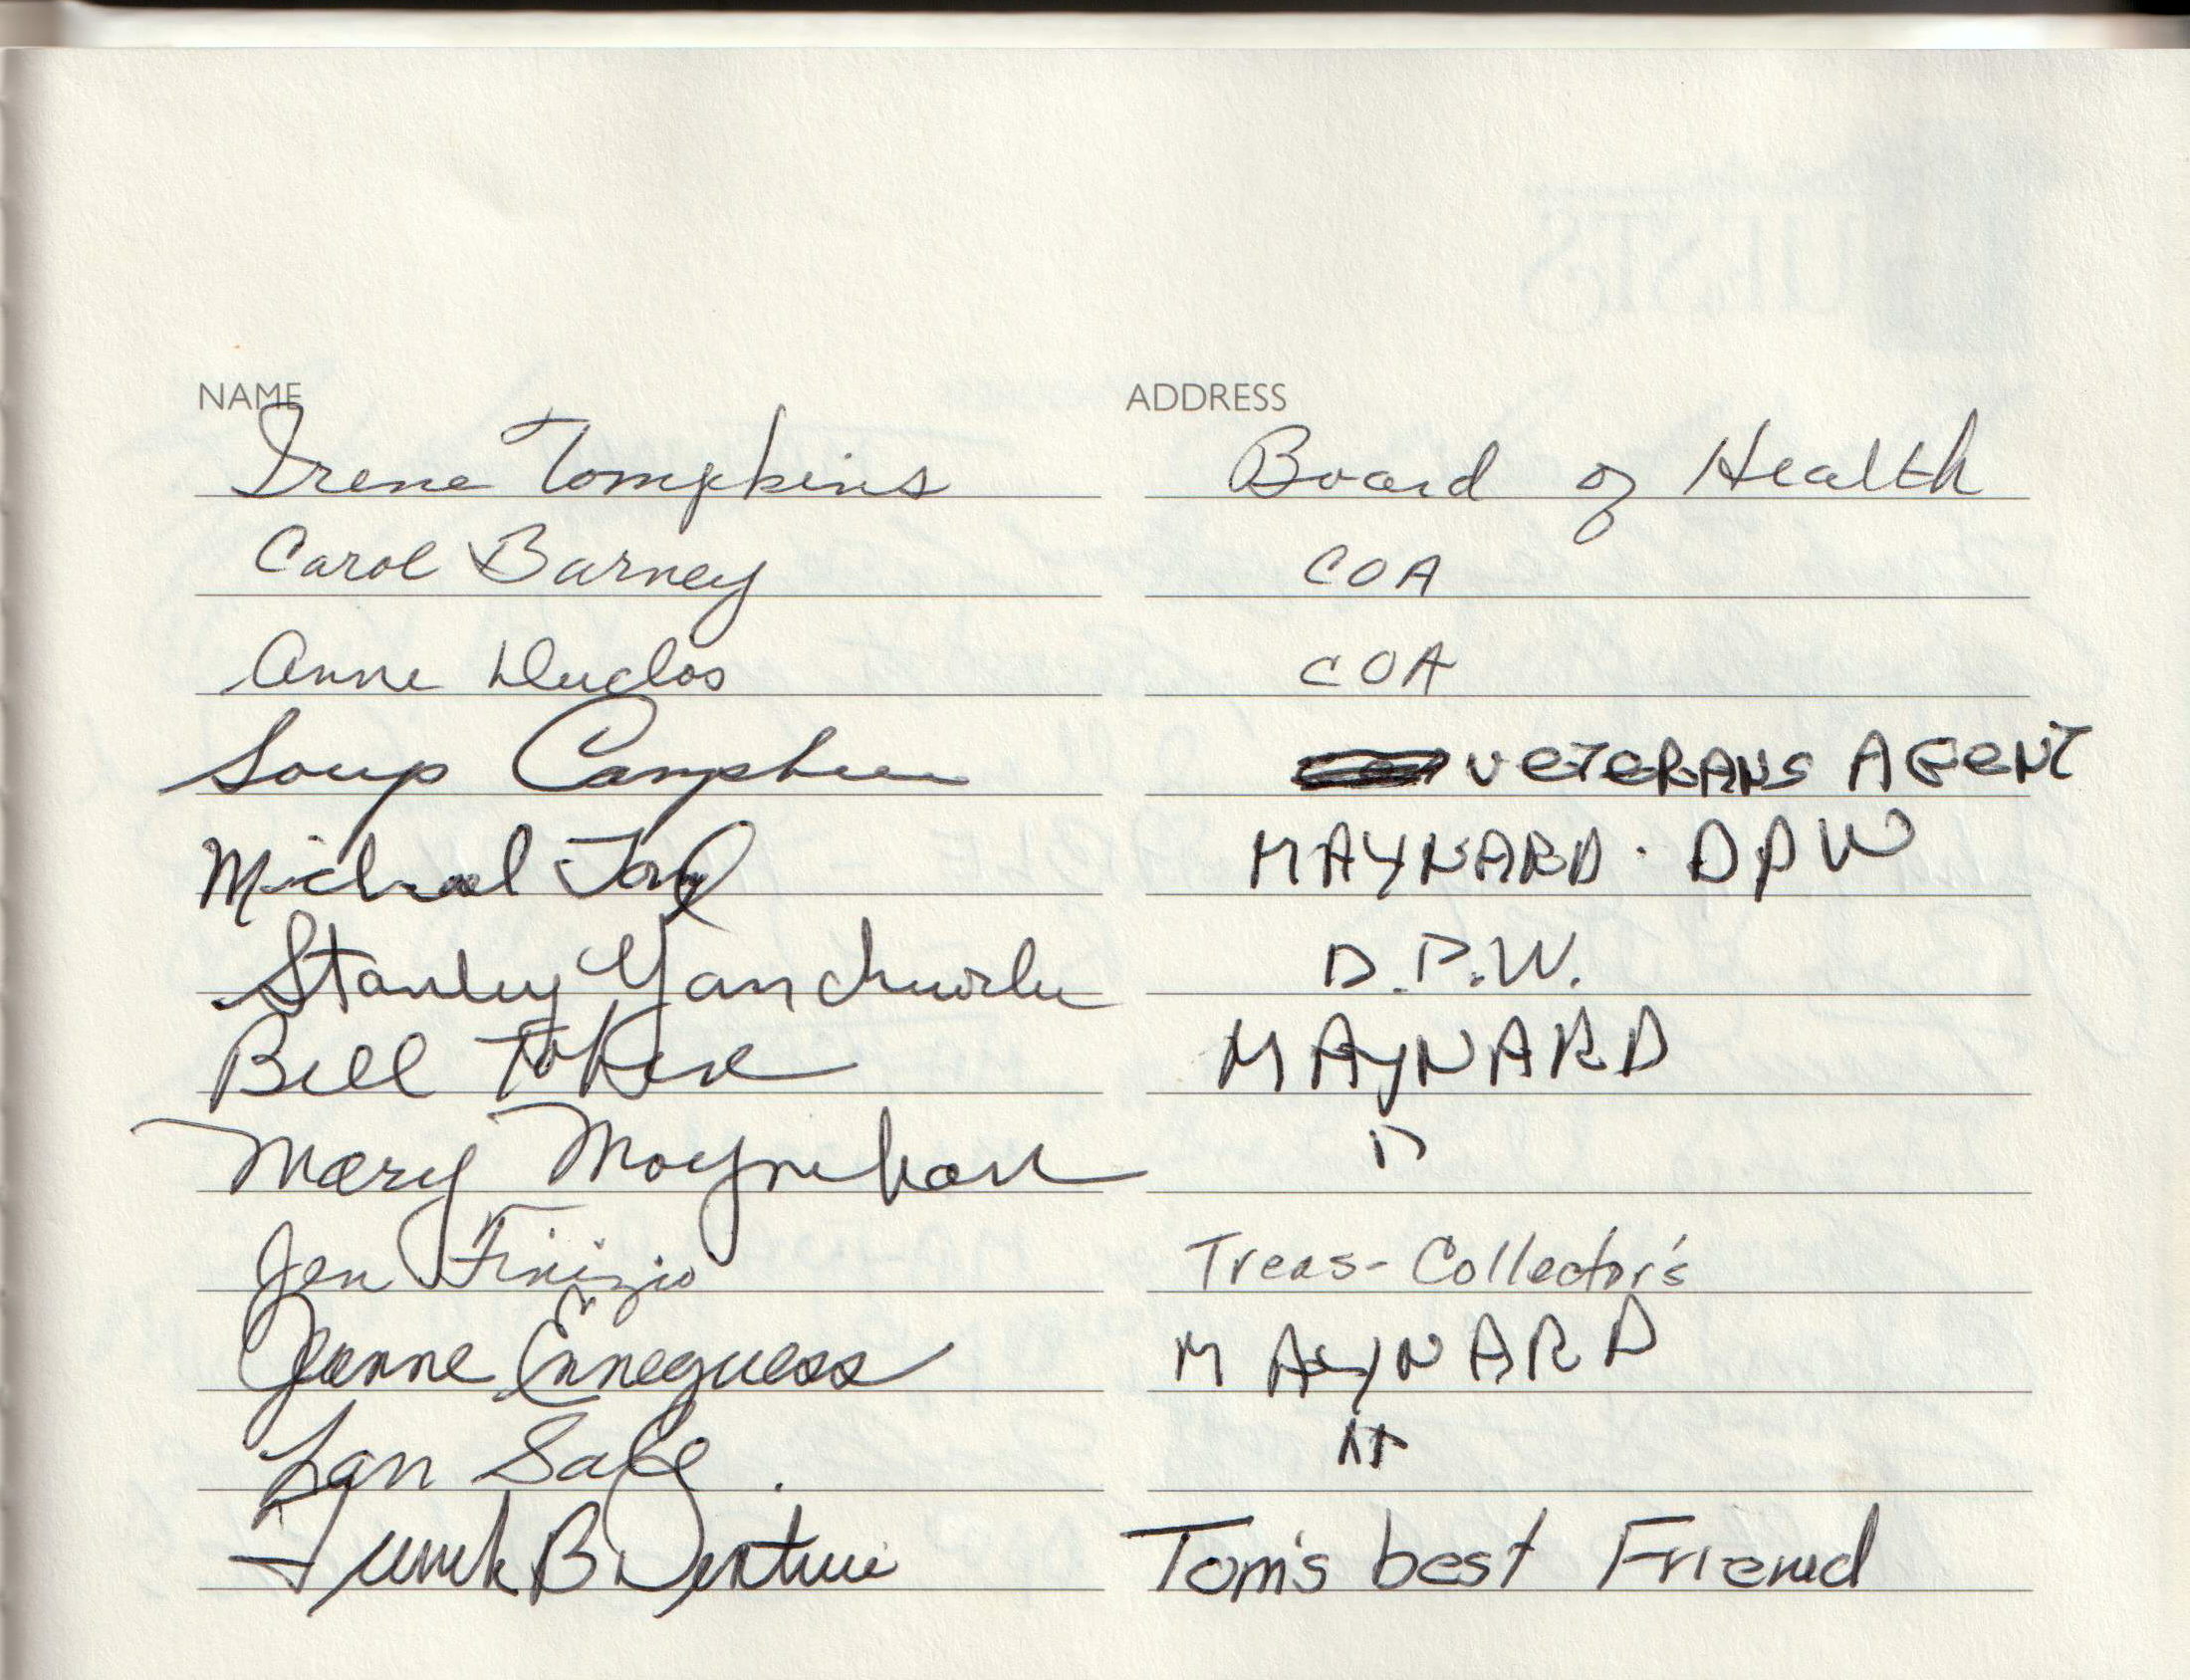 NAME ADDRESS
Irene Tompkins Board of Health
Carol Barney COA
Anne Duclos COA
Soup Campbell VETERANS AGENT
Michael MAYNARD. DPW
Stanley D.P.W.
Bill MAYNARD
Mary Moynihan "
Jen Finizio Treas-Collector's
Jeanne Enneguess MAYNARD
"
Frank B Tom's best Friend